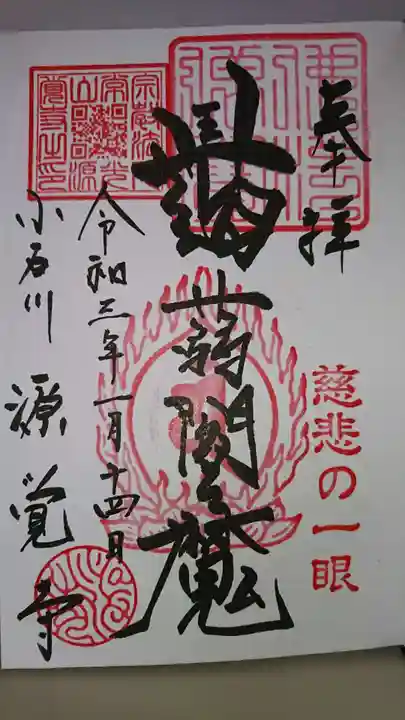 奉拝
慈悲の一眼
蒟蒻閻魔
令和三年一月十四日
小石川 源覚寺